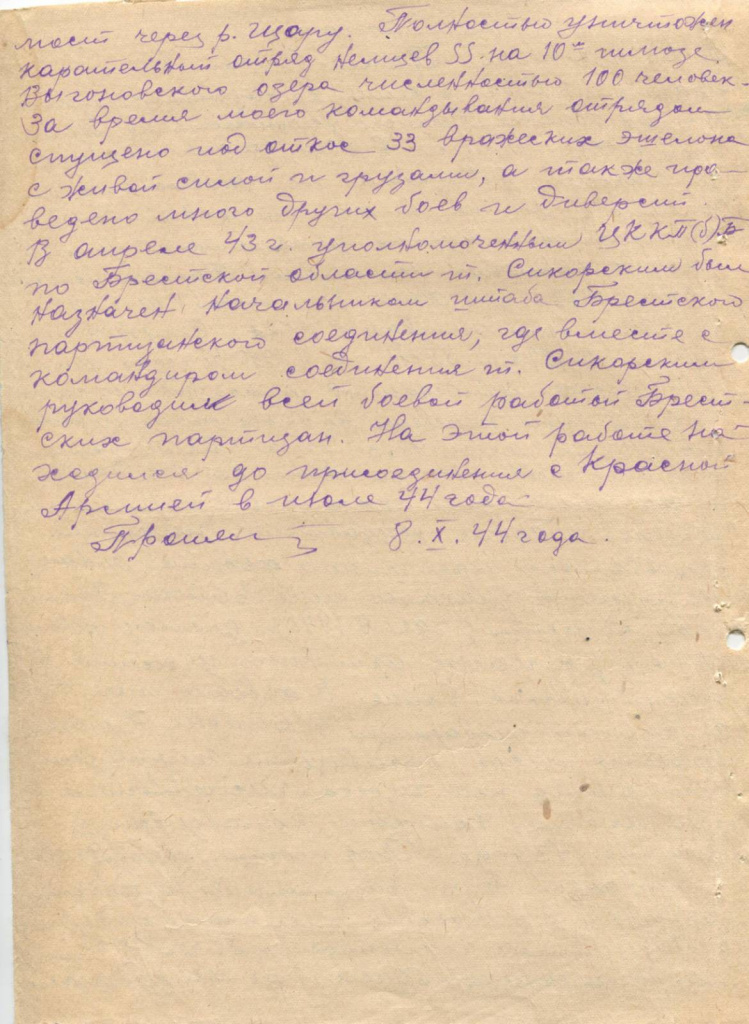 мост через р. Щару. Полностью уничтожен
карательный отряд немцев SS на 10ом шлюзе
Выгоновского озера численностью 100 человек.
За время моего командывания отрядом
спущено под откос 33 вражеских эшелона
с живой силой и грузами, а также про-
ведено много других боев и диверсий.
В апреле 43 г. уполномоченным ЦККП(б)Б
по Брестской области т. Сикорским был
назначен начальником штаба Брестского
партизанского соединения, где вместе с
командиром соединения т. Сикорским
руководил всей боевой работой Брест-
ских партизан. На этой работе на-
ходился до присоединения с Красной
Армией в июле 44 года.
8.X.44 года.